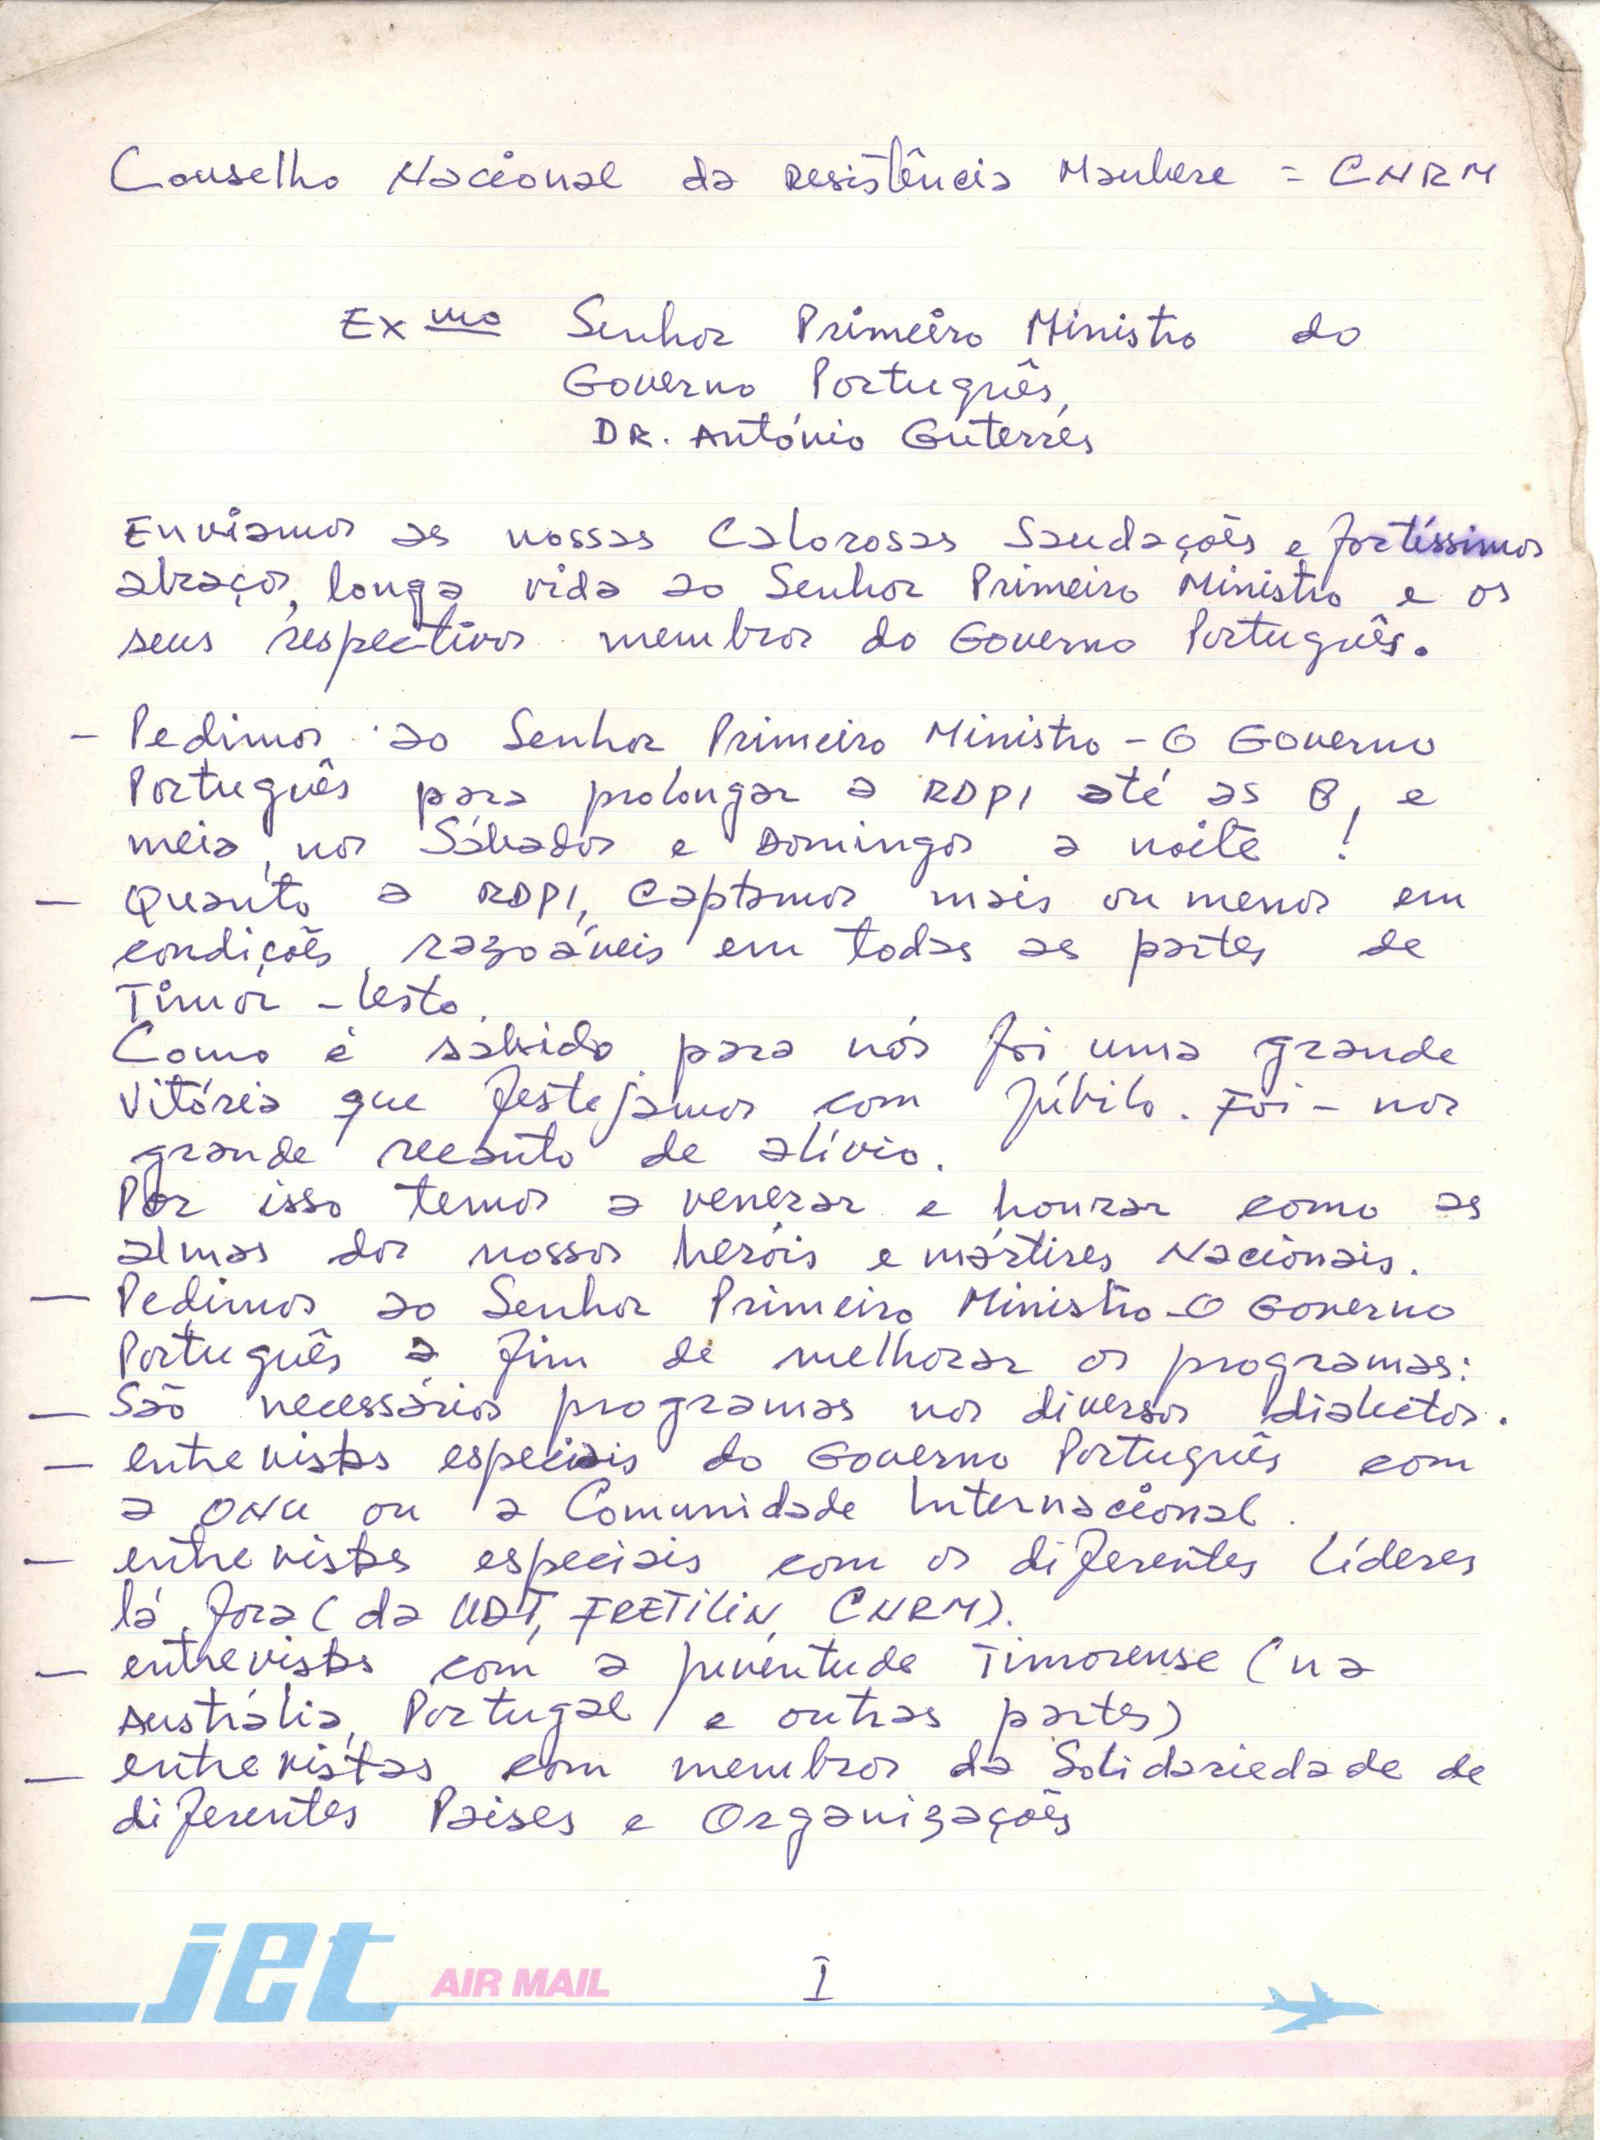 Conselho Nacional da Resistência Maubere = CNRM
Exmo Senhor Primeiro Ministro do
Governo Português,
DR. António Guterres
Enviamos as nossas Calorosas Saudações e fortíssimos
abraços, longa vida ao Senhor Primeiro Ministro e os
seus respectivos membros do Governo Português.
- Pedimos ao Senhor Primeiro Ministro - O Governo
Português para prolongar a RDPI até as 8, e
meia, nos Sábados e Domingos a noite!
- Quanto a RDPI, Captamos mais ou menos em
condições razoáveis em todas as partes de
Timor-leste.
Como é sabido para nós foi uma grande
Vitória que festejamos com júbilo. Foi-nos
grande recanto de alívio.
Por isso temos a venerar e honrar como as
almas dos nossos heróis e mártires Nacionais.
- Pedimos ao Senhor Primeiro Ministro - O Governo
Português a fim de melhorar os programas:
- São necessários programas nos diversos dialectos.
- entrevistas especiais do Governo Português com
a ONU ou a Comunidade Internacional.
- entrevistas especiais com os diferentes Líderes
lá fora (da UDT, FRETILIN, CNRM).
- entrevistas com a juventude Timorense (na
Austrália, Portugal, e outras partes)
- entrevistas com membros da Solidariedade de
diferentes Paises e Organizações
jet AIR MAIL
I